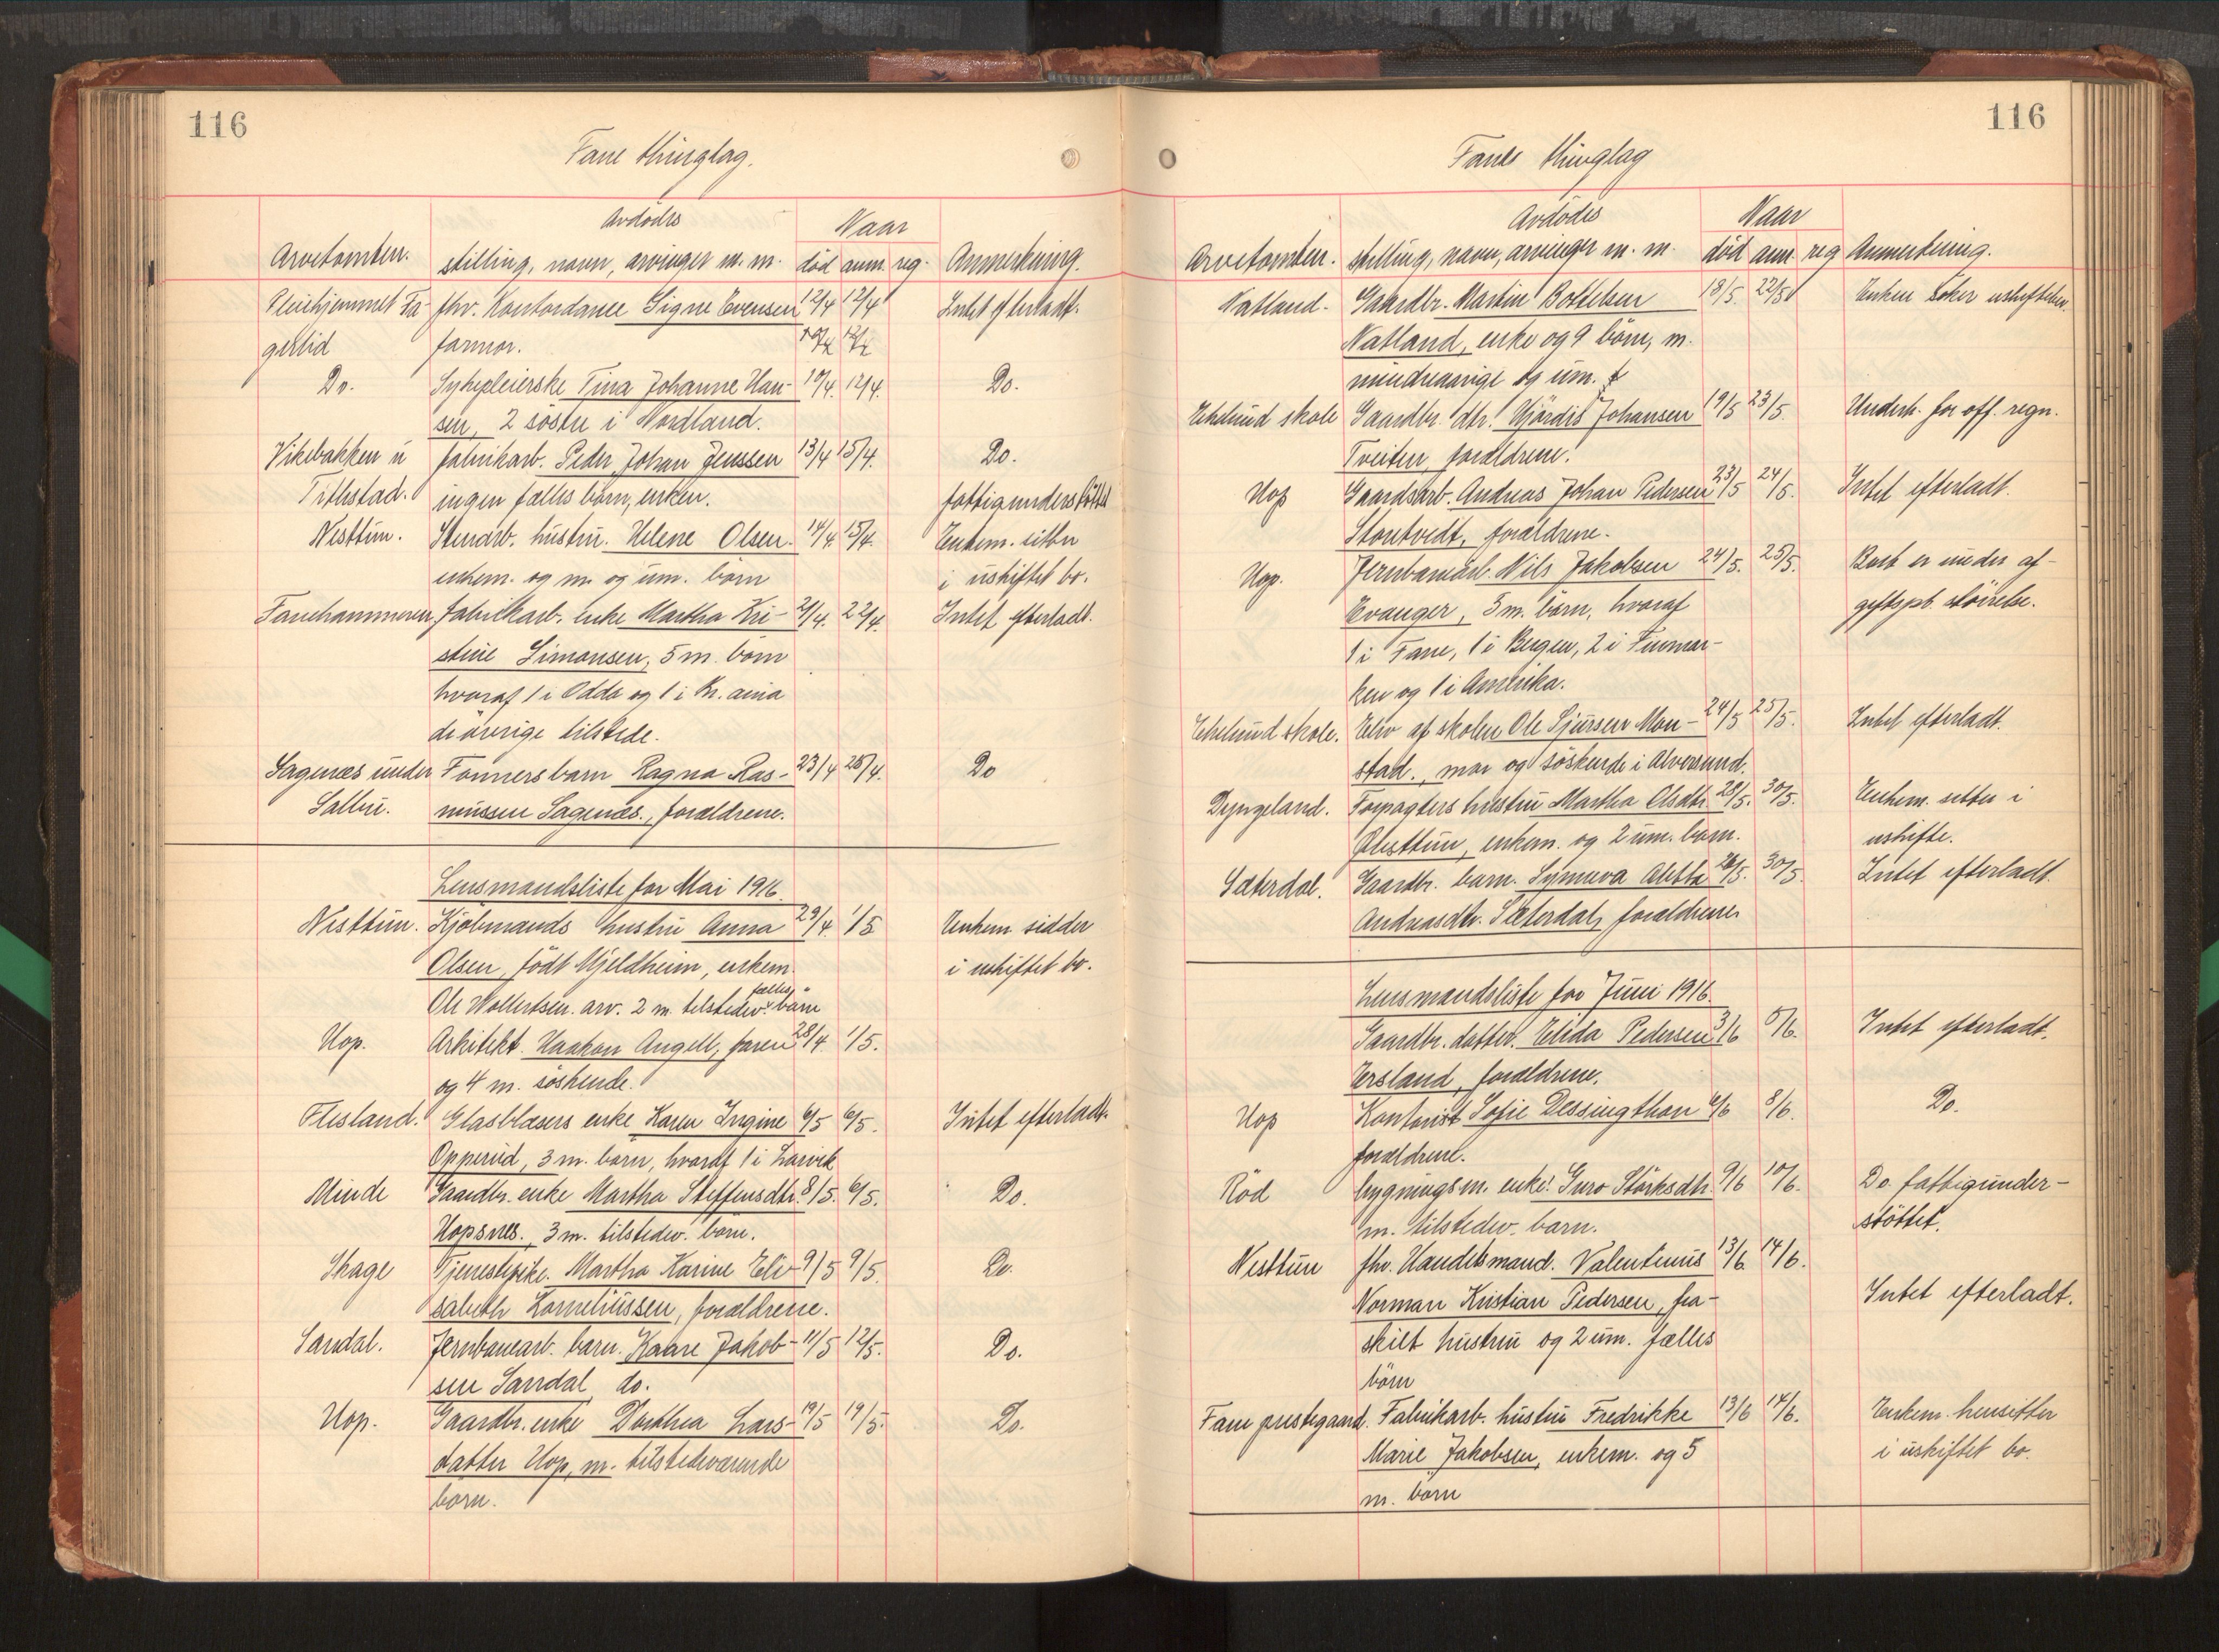 116
Fane thinglag.
Avdødes
Naar
Arvetomten.
stilling, navn, arvinger m. m.
død anm. reg.
Anmerkning.
Pleiehjemmet Fa- fhv. Kontordame Signe Evensen 12/4 12/4 Intet efterladt.
gerlid farmor.
Do. Sykepleierske Tina Johanne Han- 10/4. 12/4. Do.
sen, 2 søstre i Nordland.
Vikebakken u fabrikarb. Peder Johan Jenssen 13/4 15/4. Do.
ingen fælles barn, enken. fattigunderstøttet
Nesttun. Stenarb. hustru. Helene Olsen. 14/4. 15/4. Enkem. sitter
enkem. og m. og um. børn i uskiftet bo.
Fanehammeren fabrikarb. enke Martha Kri- 21/4. 22/4. Intet efterladt.
stine Simonsen, 5 m. børn
hvoraf 1 i Odda og 1 i Kr.ania
de øvrige tilstede.
Sagenæs under Tømmersbarn Ragna Ras- 23/4 25/4. Do
mussen Sagenæs., forældrene.
Lensmandsliste for Mai 1916.
Nesttun. Kjøbmands hustru Anna 29/4. 1/5 Enkem sidder
Olsen, født Mjeldheim, enkem. i uskiftet bo.
Ole Wollertsen. arv. 2 m. tilstedev. fælles børn
Hop. Arkitekt. Haakon Angell, faren 28/4. 1/5.
og 4 m. søskende.
Flesland. Glasblæsers enke Karen Ingine 6/5 6/5. Intet efterladt.
Opperud, 3 m. børn, hvoraf 1 i Larvik
Minde Gaardbr. enke Martha Steffensdtr. 8/5. 6/5. Do.
Hopsnes., 3 m. tilstedev. børn.
Skage Tjenestepike. Martha Karine Eli- 9/5 9/5. Do.
sabeth Korneliussen, forældrene.
Sandal. Jernbanearb. barn. Kaare Jakob- 11/5 12/5. Do.
sen Sandal do.
Hop. Gaardbr. enke Dorthea Lars- 19/5 19/5. Do.
datter Hop, m. tilstedeværende
børn.
116
Fane thinglag
Avdødes
Naar
Arvetomten. stilling, navn, arvinger m. m. død anm. reg Anmerkning.
Natland. Gaardbr. Martin Bottelsen 18/5. 22/5 Enken søker uskiftebev.
Natland, enke og 9 børn, m.
mindreaarige og um.
Ekelund skole Gaardbr. dtr. Hjørdis Johansen 19/5 23/5. Undersk. for off. regn.
Tveiten, forældrene.
Hop Gaardsarb. Andreas Johan Pedersen 23/5 24/5. Intet efterladt.
Storetvedt, forældrene.
Hop. Jernbanearb. Nils Jakobsen 24/5. 25/5. Boet er under af-
Evanger, 5 m. børn, hvoraf giftspl. størrelse.
1 i Fane, 1 i Bergen, 2 i Finmar-
ken og 1 i Amerika.
Ekelund skole. Elev af skolen Ole Sjursen Mon- 24/5 25/5. Intet efterladt.
stad., mor og søskende i Alversund.
Dyngeland. Forpagters hustru Martha Olsdtr. 28/5. 30/5. Enkem. sitter i
Nesttun, enkem. og 2 um. børn. uskifte.
Sæterdal. Gaardbr. barn. Synneva Aletta 26/5. 30/5. Intet efterladt.
Andreasdtr. Sæterdal, forældrene
Lensmandsliste for Juni 1916.
Gaardbr. datter. Elida Pedersen 3/6 5/6. Intet efterladt.
Tersland, forældrene.
Hop Kontorist Sofie Dessingthon 4/6 8/6. Do.
forældrene.
Rød bygningsm. enke: Guro Størksdtr. 9/6 10/6. Do. fattigunder-
m. tilstedev. børn. støttet.
Nesttun fhv. Handelsmand. Valentinus 13/6 14/6.
Norman Kristian Pedersen, fra- Intet efterladt.
skilt hustru og 2 um. fælles
børn
Fane prestegaard. Fabrikarb. hustru Fredrikke 13/6 14/6. Enkem. hensitter
Marie Jakobsen, enkem. og 5 i uskiftet bo.
m. børn